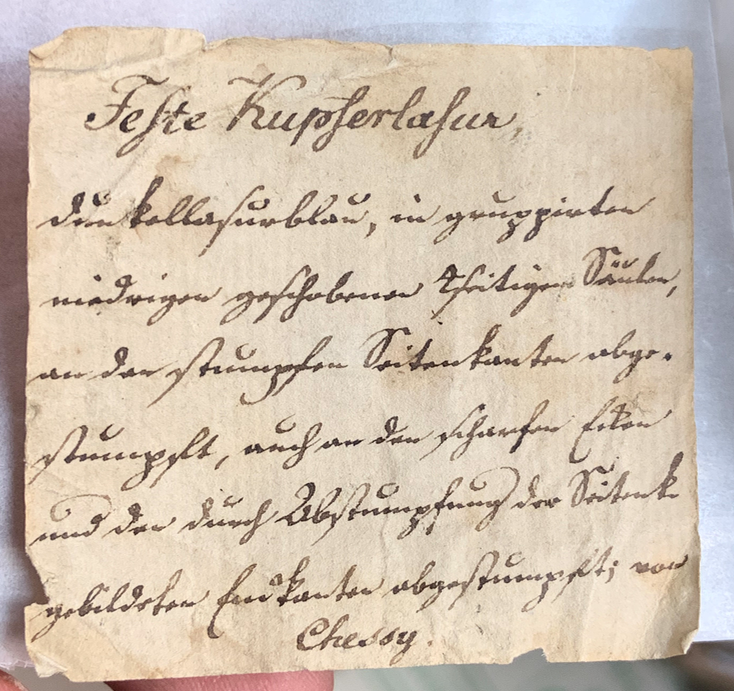 Feste Kupferlasur,
dunkellasurblau, in gruppirten
niedrigen geschobenen 4seitigen Säulen,
an den stumpfen Seitenkanten abge-
stumpft, auch an den scharfen Ecken
und den durch Abstumpfung der Seitenk
gebildeten Endkanten abgestumpft; von
Chessy.